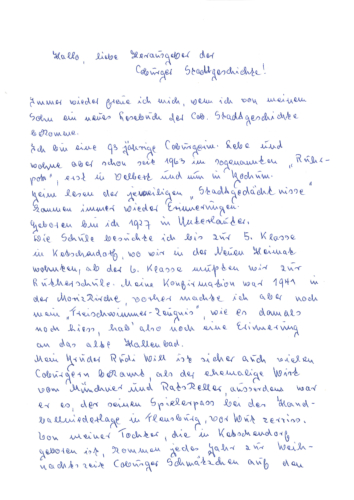 Hallo, liebe Herausgeber der
Coburger Stadtgeschichte!
Immer wieder freue ich mich, wenn ich von meinem
Sohn ein neues Lesebuch der Cob. Stadtgeschichte
bekomme.
Ich bin eine 93 jährige Coburgerin. Lebe und
wohne aber schon seit 1963 im sogenannten „Ruhr-
pott", erst in Velbert und nun in Bochum.
Beim Lesen der jeweiligen „Stadtgedächtnisse"
kommen immer wieder Erinnerungen.
Geboren bin ich 1927 in Unterlauter.
Die Schule besuchte ich bis zur 5. Klasse
in Ketschendorf, wo wir in der Neuen Heimat
wohnten, ab der 6. Klasse mußten wir zur
Rückertschule. Meine Konfirmation war 1941 in
der Morizkirche, vorher machte ich aber noch
mein „Freischwimmer-Zeugnis", wie es damals
noch hiess, hab' also noch eine Erinnerung
an das alte Hallenbad.
Mein Bruder Rudi Will ist sicher auch vielen
Coburgern bekannt, als der ehemalige Wirt
vom Münchner und Ratskeller, ausserdem war
er es, der seinen Spielerpass bei der Hand-
ballniederlage in Flensburg, vor Wut zerriss.
Von meiner Tochter, die in Ketschendorf
geboren ist, kommen jedes Jahr zur Weih-
nachtszeit Coburger Schmätzchen auf den